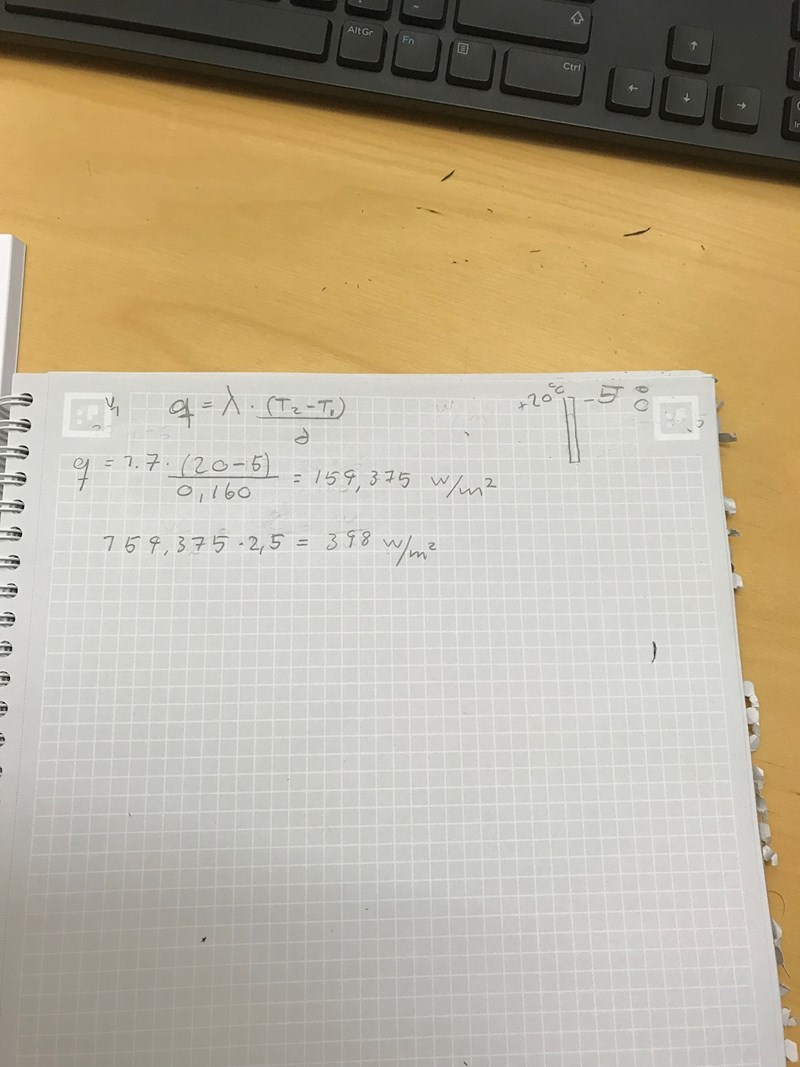 AltGr
Fn
Ctrl
V1
q = λ · (T2 - T1) / d
+20°C
-5°C
q = 1.7 · (20-5) / 0,160 = 159,375 W/m²
159,375 · 2,5 = 398 W/m²